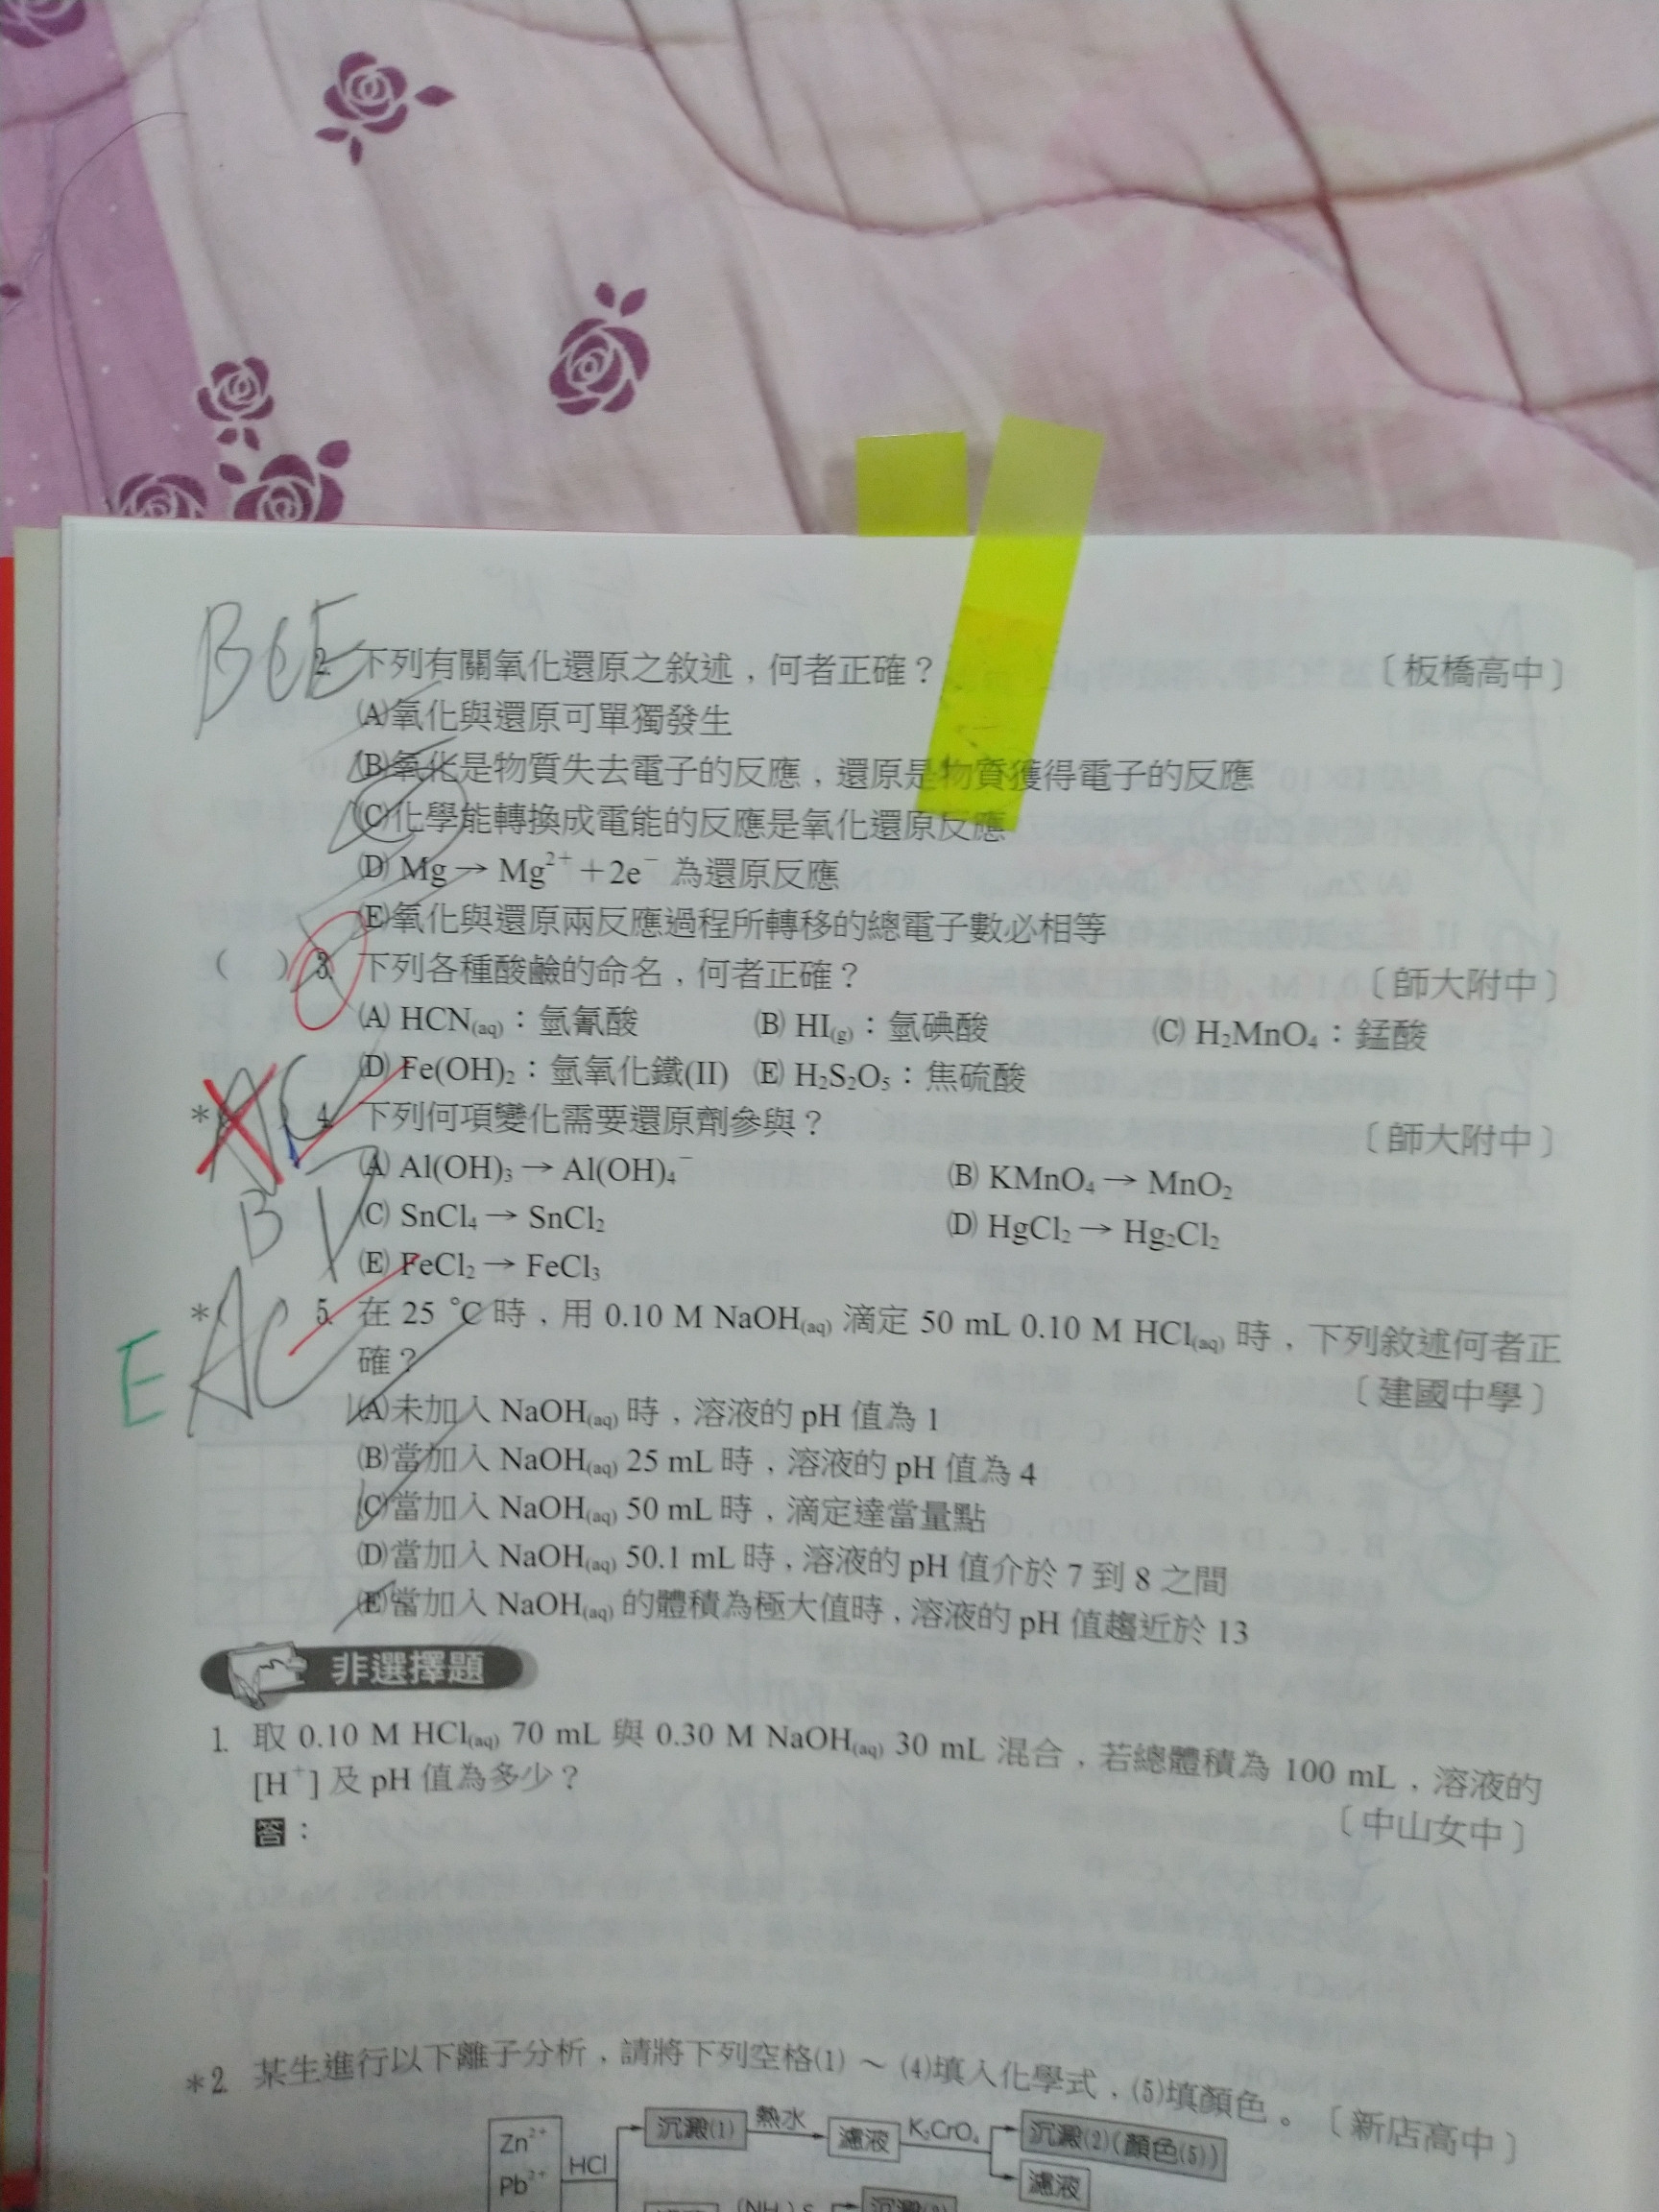 BCE
2. 下列有關氧化還原之敘述，何者正確？〔板橋高中〕
(A)氧化與還原可單獨發生
(B)氧化是物質失去電子的反應，還原是物質獲得電子的反應
(C)化學能轉換成電能的反應是氧化還原反應
(D) Mg → Mg²⁺ + 2e⁻ 為還原反應
(E)氧化與還原兩反應過程所轉移的總電子數必相等
( ) 3. 下列各種酸鹼的命名，何者正確？〔師大附中〕
(A) HCN(aq)：氫氰酸 (B) HI(g)：氫碘酸 (C) H₂MnO₄：錳酸
(D) Fe(OH)₂：氫氧化鐵(II) (E) H₂S₂O₅：焦硫酸
* 4. 下列何項變化需要還原劑參與？〔師大附中〕
(A) Al(OH)₃ → Al(OH)₄⁻ (B) KMnO₄ → MnO₂
B
(C) SnCl₄ → SnCl₂ (D) HgCl₂ → Hg₂Cl₂
(E) FeCl₂ → FeCl₃
E AC
*( 5. 在 25 ℃ 時，用 0.10 M NaOH(aq) 滴定 50 mL 0.10 M HCl(aq) 時，下列敘述何者正
確？〔建國中學〕
(A)未加入 NaOH(aq) 時，溶液的 pH 值為 1
(B)當加入 NaOH(aq) 25 mL 時，溶液的 pH 值為 4
(C)當加入 NaOH(aq) 50 mL 時，滴定達當量點
(D)當加入 NaOH(aq) 50.1 mL 時，溶液的 pH 值介於 7 到 8 之間
(E)當加入 NaOH(aq) 的體積為極大值時，溶液的 pH 值趨近於 13
非選擇題
1. 取 0.10 M HCl(aq) 70 mL 與 0.30 M NaOH(aq) 30 mL 混合，若總體積為 100 mL，溶液的
[H⁺] 及 pH 值為多少？〔中山女中〕
答：
*2. 某生進行以下離子分析，請將下列空格(1) ～ (4)填入化學式，(5)填顏色。〔新店高中〕
Zn²⁺
Pb²⁺
HCl
沉澱(1)
熱水
濾液
K₂CrO₄
沉澱(2)(顏色(5))
濾液
(NH₄)₂S
沉澱(3)